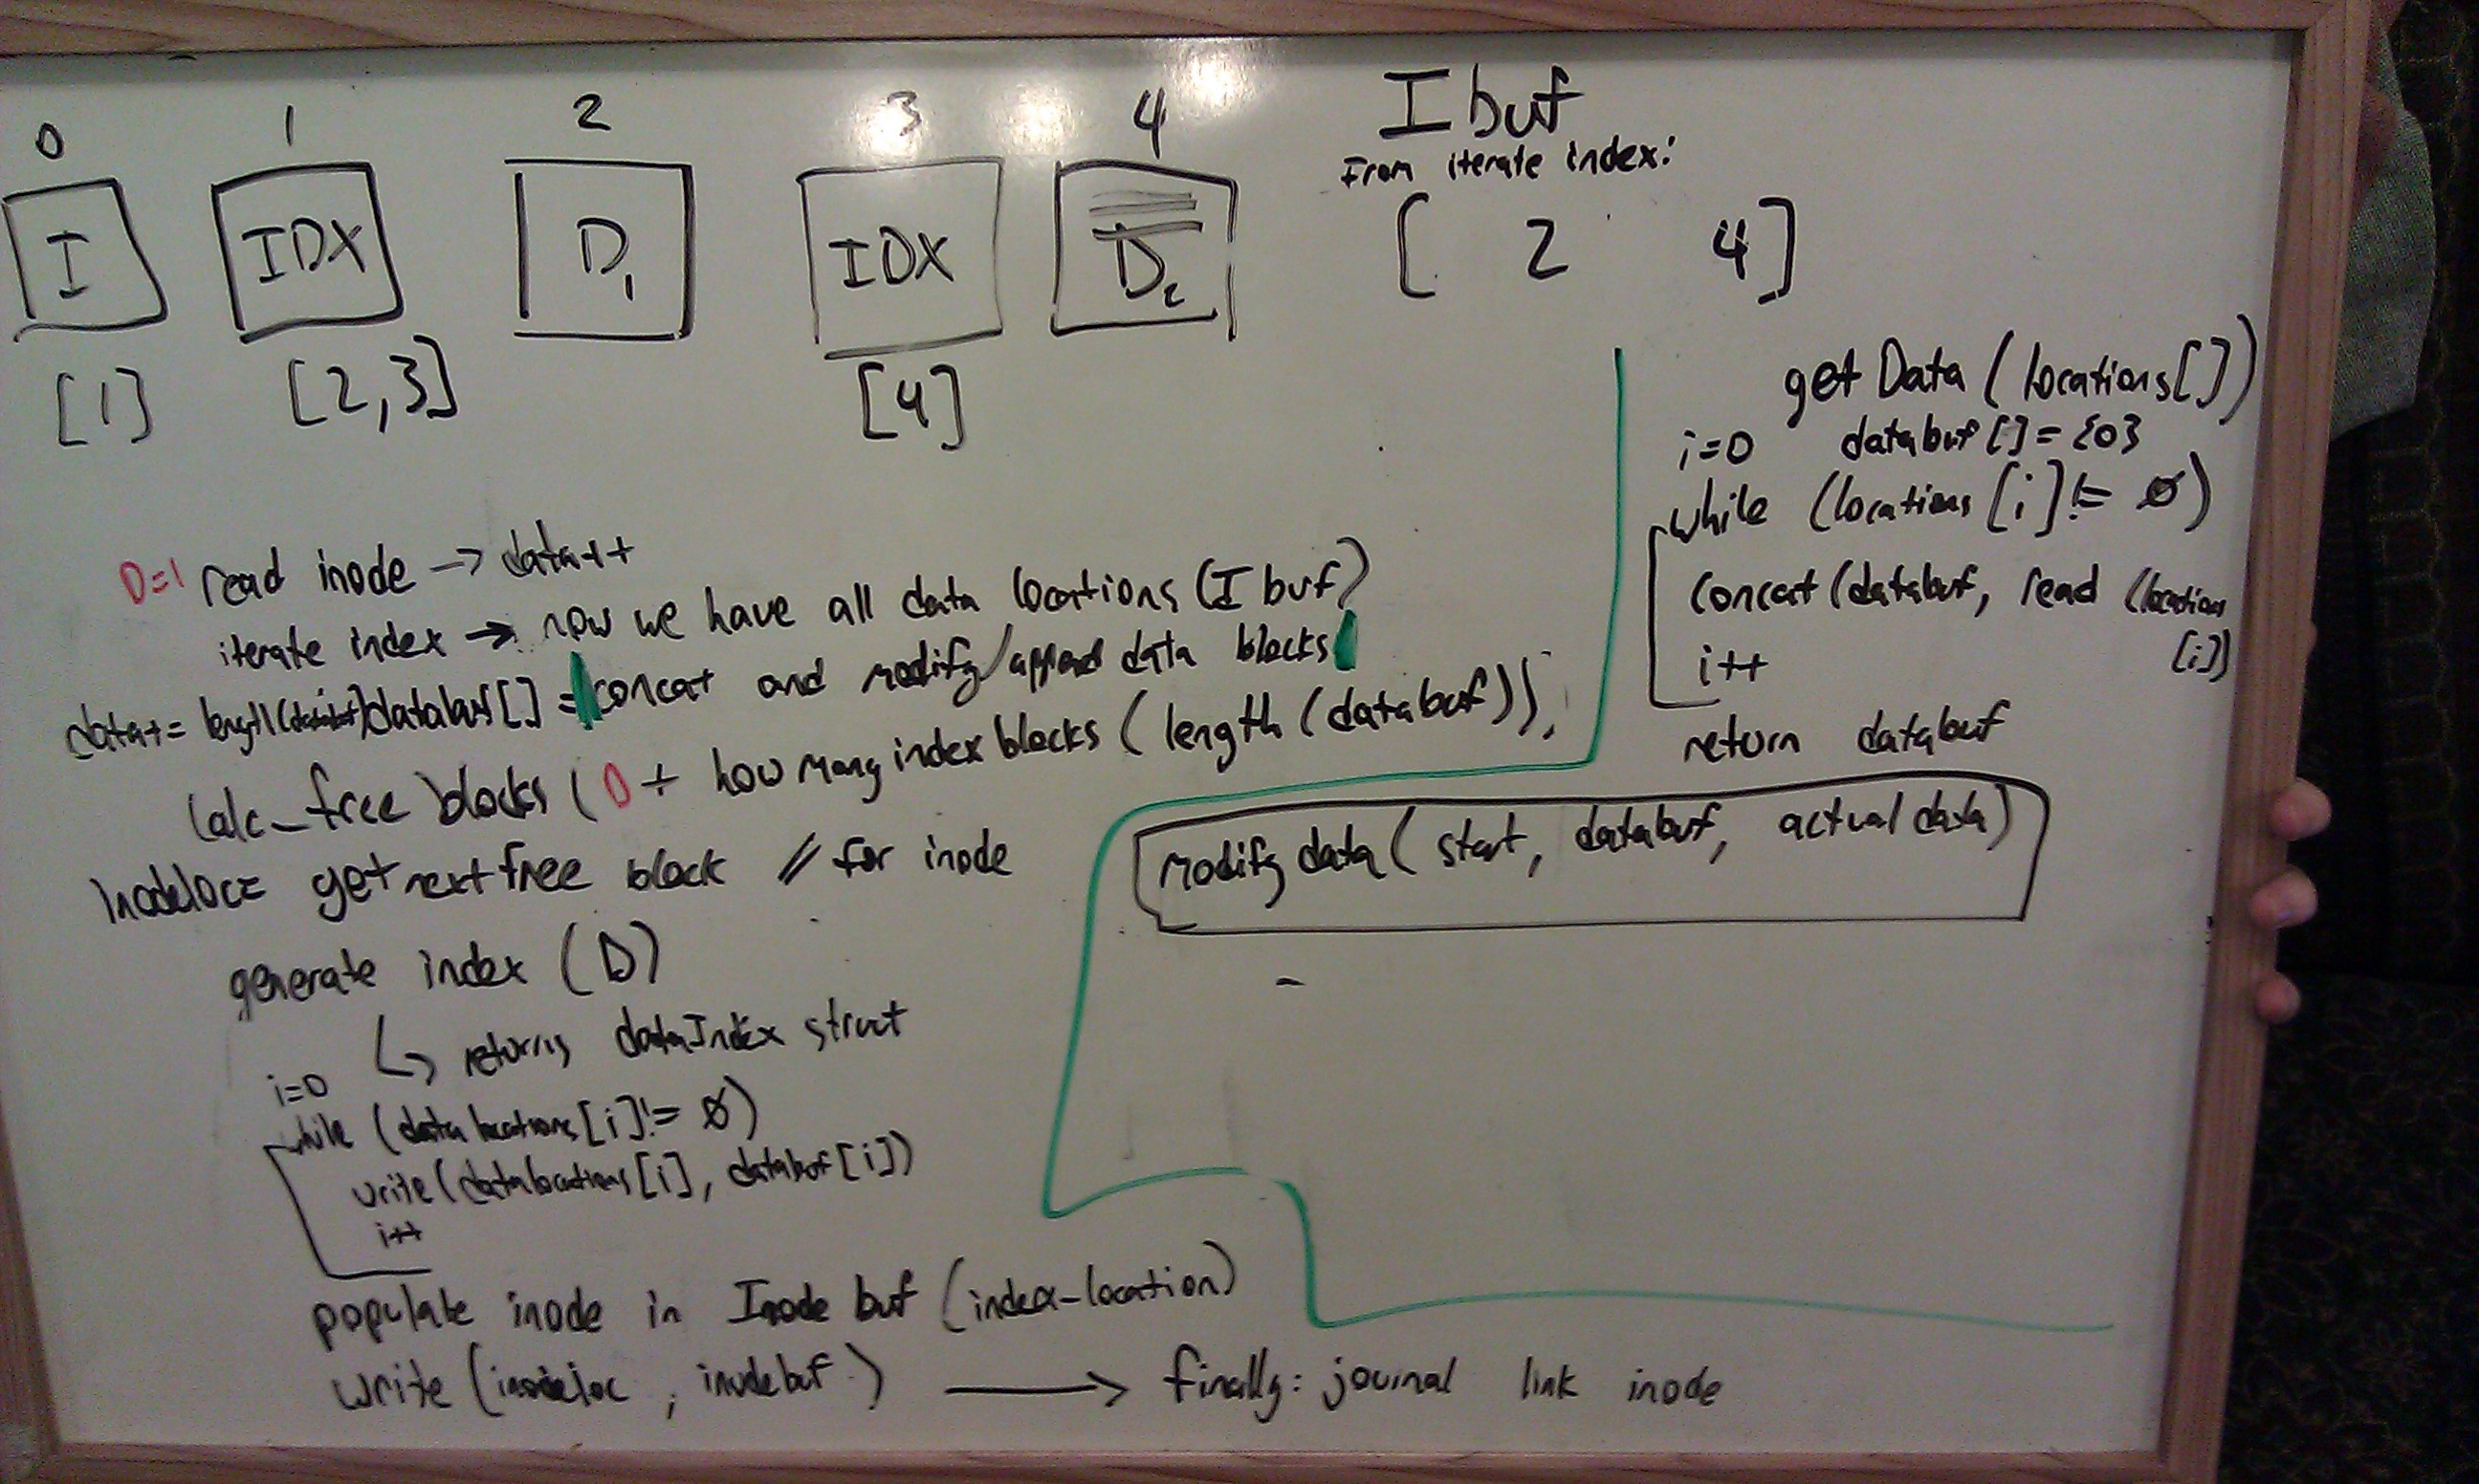 0 1 2 3 4
I IDX D₁ IDX D₂
[1] [2,3] [4]
I buf
From iterate index:
[ 2 4]
D=1 read inode -> data++
iterate index -> now we have all data locations (I buf)
data+= length(databuf) databuf[] = concat and modify/append data blocks
Calc_free blocks (D + how many index blocks (length (databuf)),
Inodeloc= get next free block // for inode
generate index (D)
↳ returns dataIndex struct
i=0
while (data locations[i]!= Ø)
write(datalocations[i], databuf[i])
i++
populate inode in Inode buf (index-location)
write (inodeloc, inodebuf) ⟶ finally: journal link inode
get Data (locations[])
i=0 databuf[]={0}
while (locations[i]!= Ø)
concat(databuf, read (locations
[i])
i++
return databuf
modify data( start, databuf, actual data)